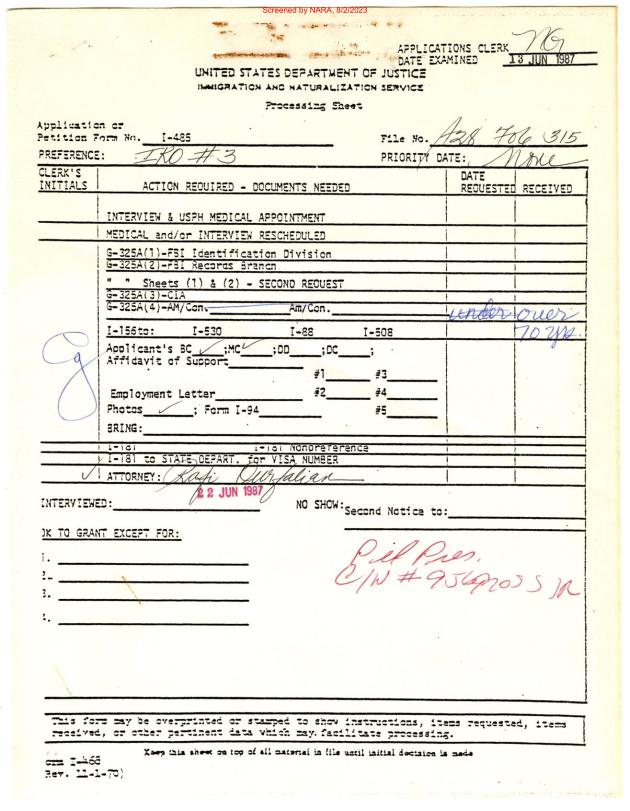 Screened by NARA, 8/2/2023
APPLICATIONS CLERK NG
DATE EXAMINED 13 JUN 1987
UNITED STATES DEPARTMENT OF JUSTICE
IMMIGRATION AND NATURALIZATION SERVICE
Processing Sheet
Application or
Petition Form No. I-485 File No. A28 706 315
PREFERENCE: IRO #3 PRIORITY DATE: None
CLERK'S INITIALS ACTION REQUIRED - DOCUMENTS NEEDED DATE REQUESTED RECEIVED
INTERVIEW & USPH MEDICAL APPOINTMENT
MEDICAL and/or INTERVIEW RESCHEDULED
G-325A(1)-FBI Identification Division
G-325A(2)-FBI Records Branch
" " Sheets (1) & (2) - SECOND REQUEST
G-325A(3)-CIA
G-325A(4)-AM/Con. Am/Con. under over
I-156to: I-530 I-88 I-508 70 yrs.
Applicant's BC ✓ ;MC ✓ ;DD ;DC ;
Affidavit of Support
#1 #3
Employment Letter #2 #4
Photos ✓ ; Form I-94 #5
BRING:
I-181 I-181 Nonpreference
I-181 to STATE DEPART. for VISA NUMBER
✓ ATTORNEY: Rafi Ourfalian
22 JUN 1987
INTERVIEWED: NO SHOW: Second Notice to:
OK TO GRANT EXCEPT FOR:
1.
2.
3.
4.
C/W #
This form may be overprinted or stamped to show instructions, items requested, items
received, or other pertinent data which may facilitate processing.
Keep this sheet on top of all material in file until initial decision is made
orm I-468
Rev. 11-1-70)